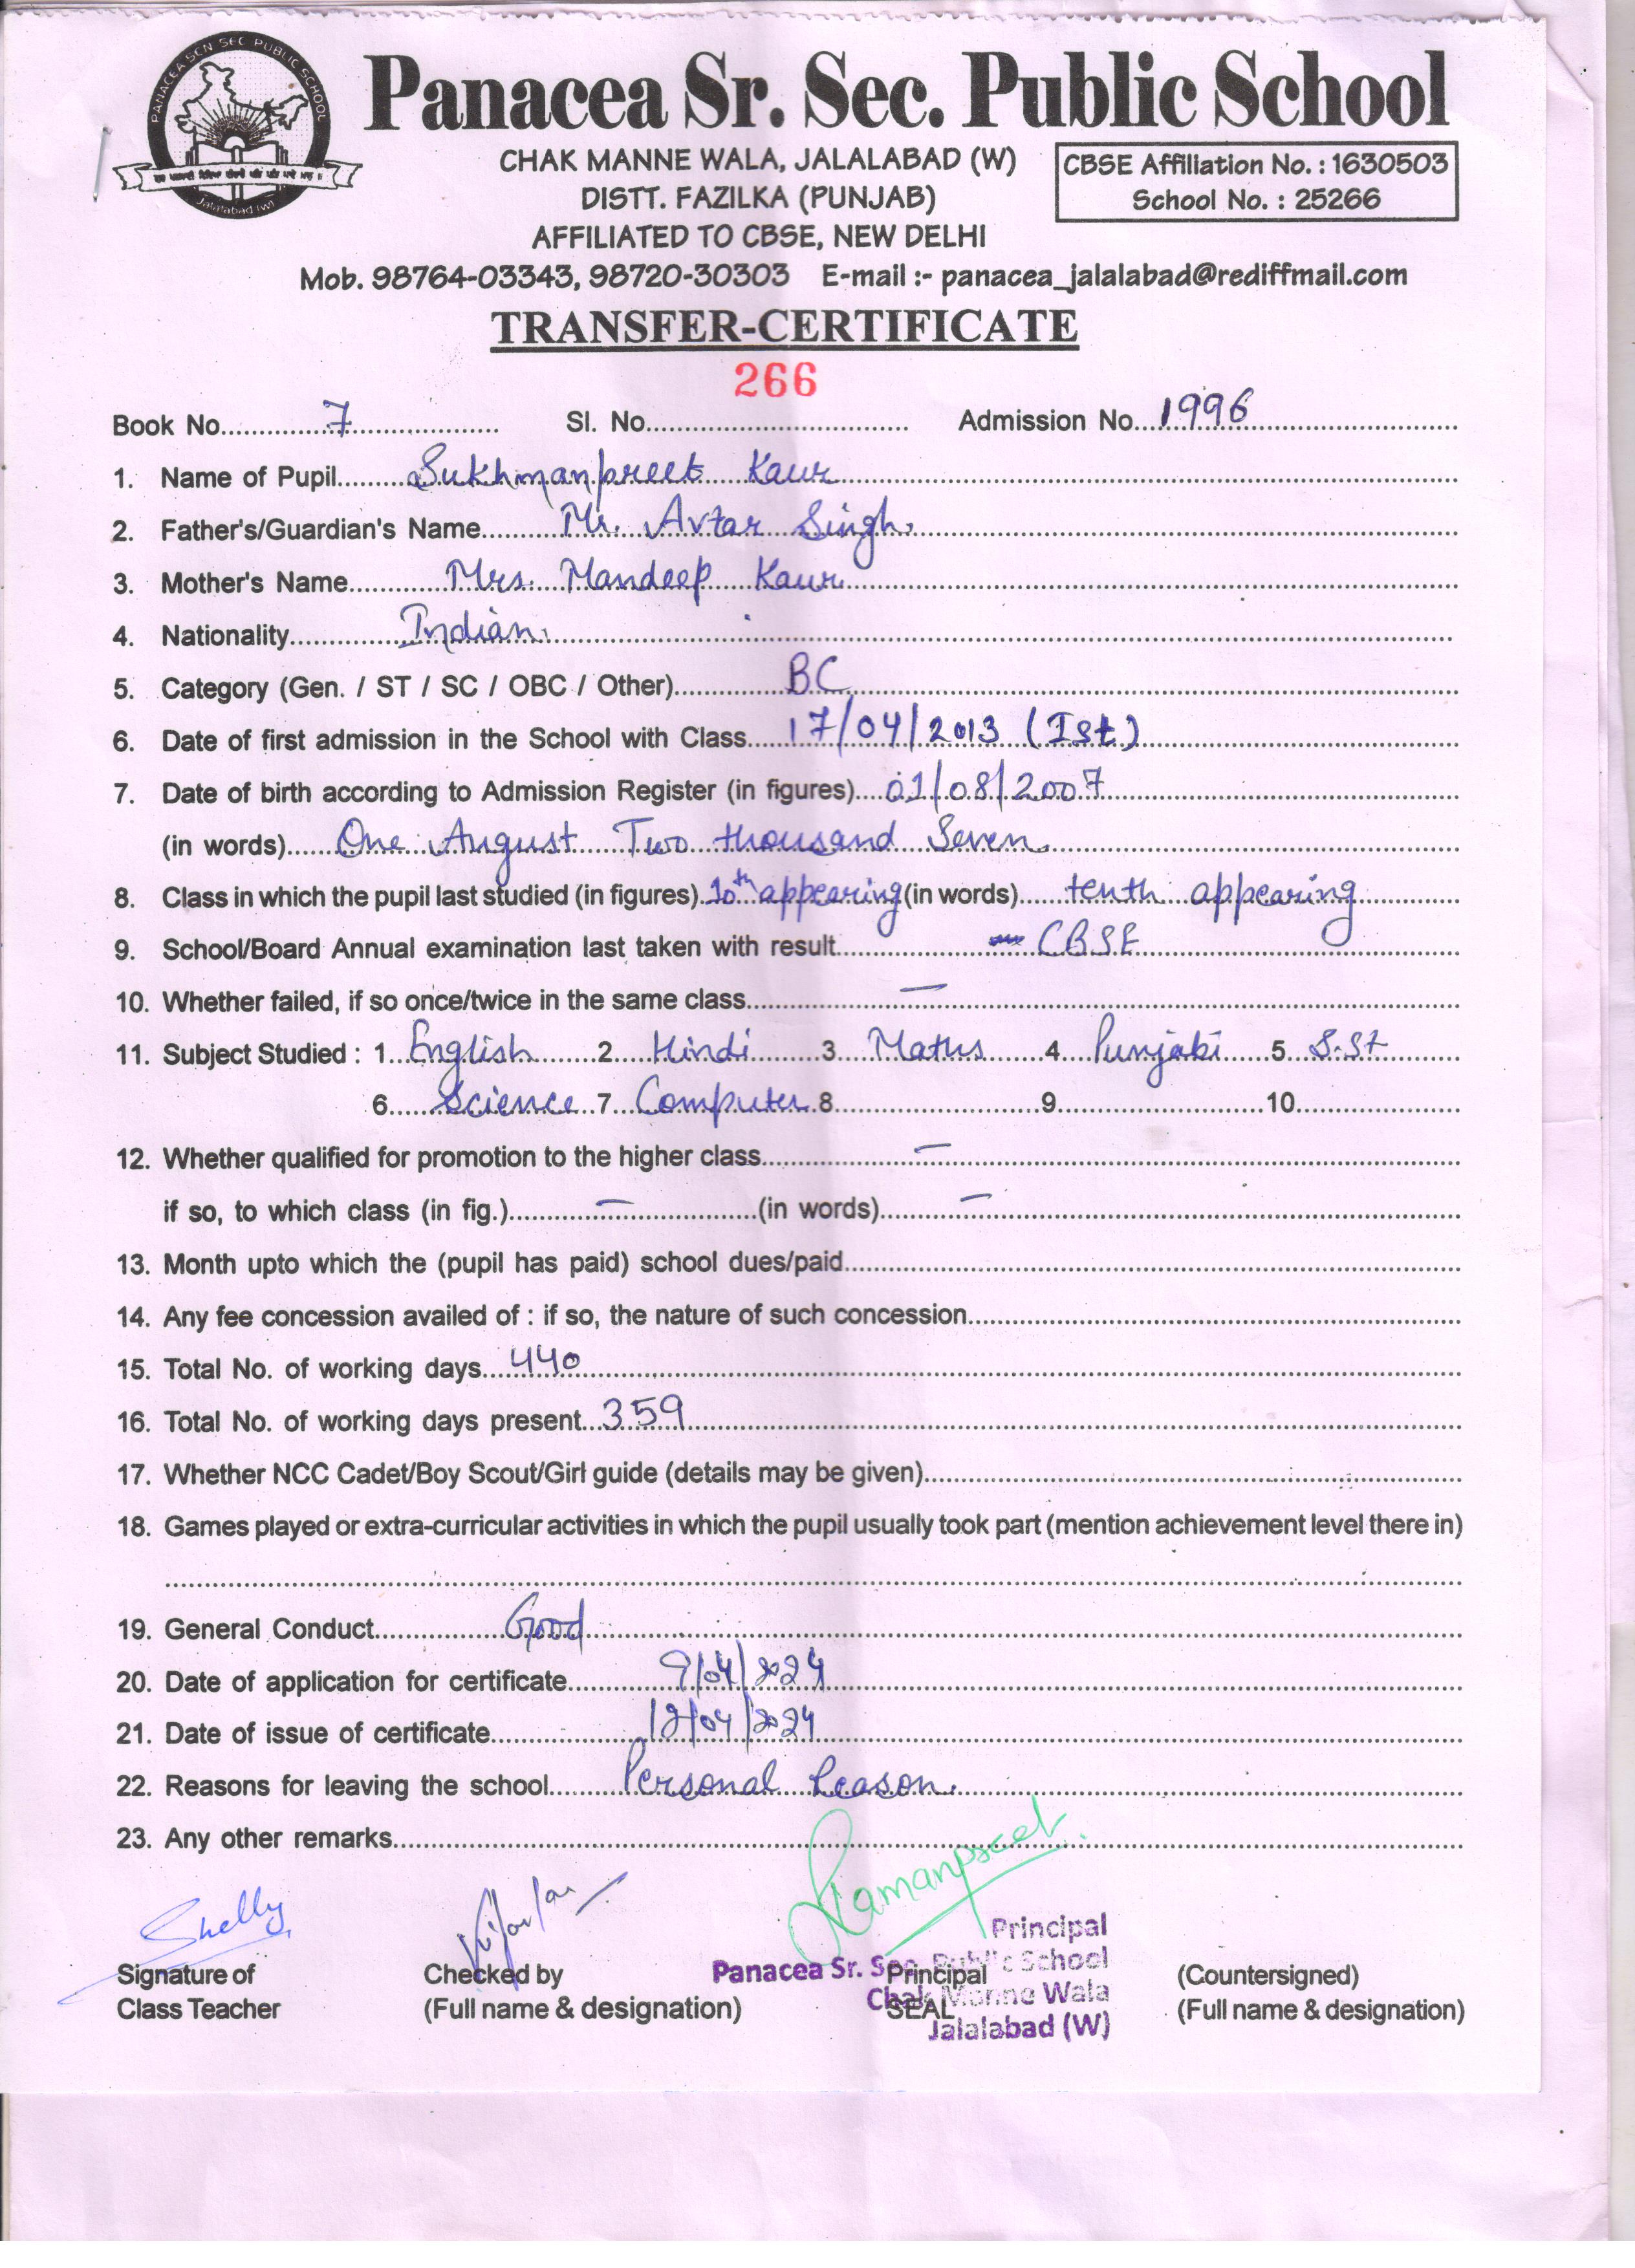 PANACEA SEN SEC PUBLIC SCHOOL
Jalalabad (W)
Panacea Sr. Sec. Public School
CHAK MANNE WALA, JALALABAD (W)
DISTT. FAZILKA (PUNJAB)
AFFILIATED TO CBSE, NEW DELHI
CBSE Affiliation No. : 1630503
School No. : 25266
Mob. 98764-03343, 98720-30303 E-mail :- panacea_jalalabad@rediffmail.com
TRANSFER-CERTIFICATE
266
Book No. 7 Sl. No. Admission No. 1996
1. Name of Pupil Sukhmanpreet Kaur
2. Father's/Guardian's Name Mr. Avtar Singh.
3. Mother's Name Mrs. Mandeep Kaur
4. Nationality Indian.
5. Category (Gen. / ST / SC / OBC / Other) BC
6. Date of first admission in the School with Class 17/04/2013 (Ist)
7. Date of birth according to Admission Register (in figures) 01/08/2007
(in words) One August Two thousand Seven
8. Class in which the pupil last studied (in figures) 10th appearing (in words) tenth appearing
9. School/Board Annual examination last taken with result CBSE
10. Whether failed, if so once/twice in the same class —
11. Subject Studied : 1 English 2 Hindi 3 Maths 4 Punjabi 5 S.St
6 Science 7 Computer 8 9 10
12. Whether qualified for promotion to the higher class —
if so, to which class (in fig.) — (in words) —
13. Month upto which the (pupil has paid) school dues/paid
14. Any fee concession availed of : if so, the nature of such concession
15. Total No. of working days 440
16. Total No. of working days present 359
17. Whether NCC Cadet/Boy Scout/Girl guide (details may be given)
18. Games played or extra-curricular activities in which the pupil usually took part (mention achievement level there in)
19. General Conduct Good
20. Date of application for certificate 9/04/2024
21. Date of issue of certificate 12/04/2024
22. Reasons for leaving the school Personal Reason.
23. Any other remarks
Shelly
Ramanpreet
Principal
Panacea Sr. Sec. Public School
Chak Manne Wala
Jalalabad (W)
Signature of Checked by Principal (Countersigned)
Class Teacher (Full name & designation) SEAL (Full name & designation)